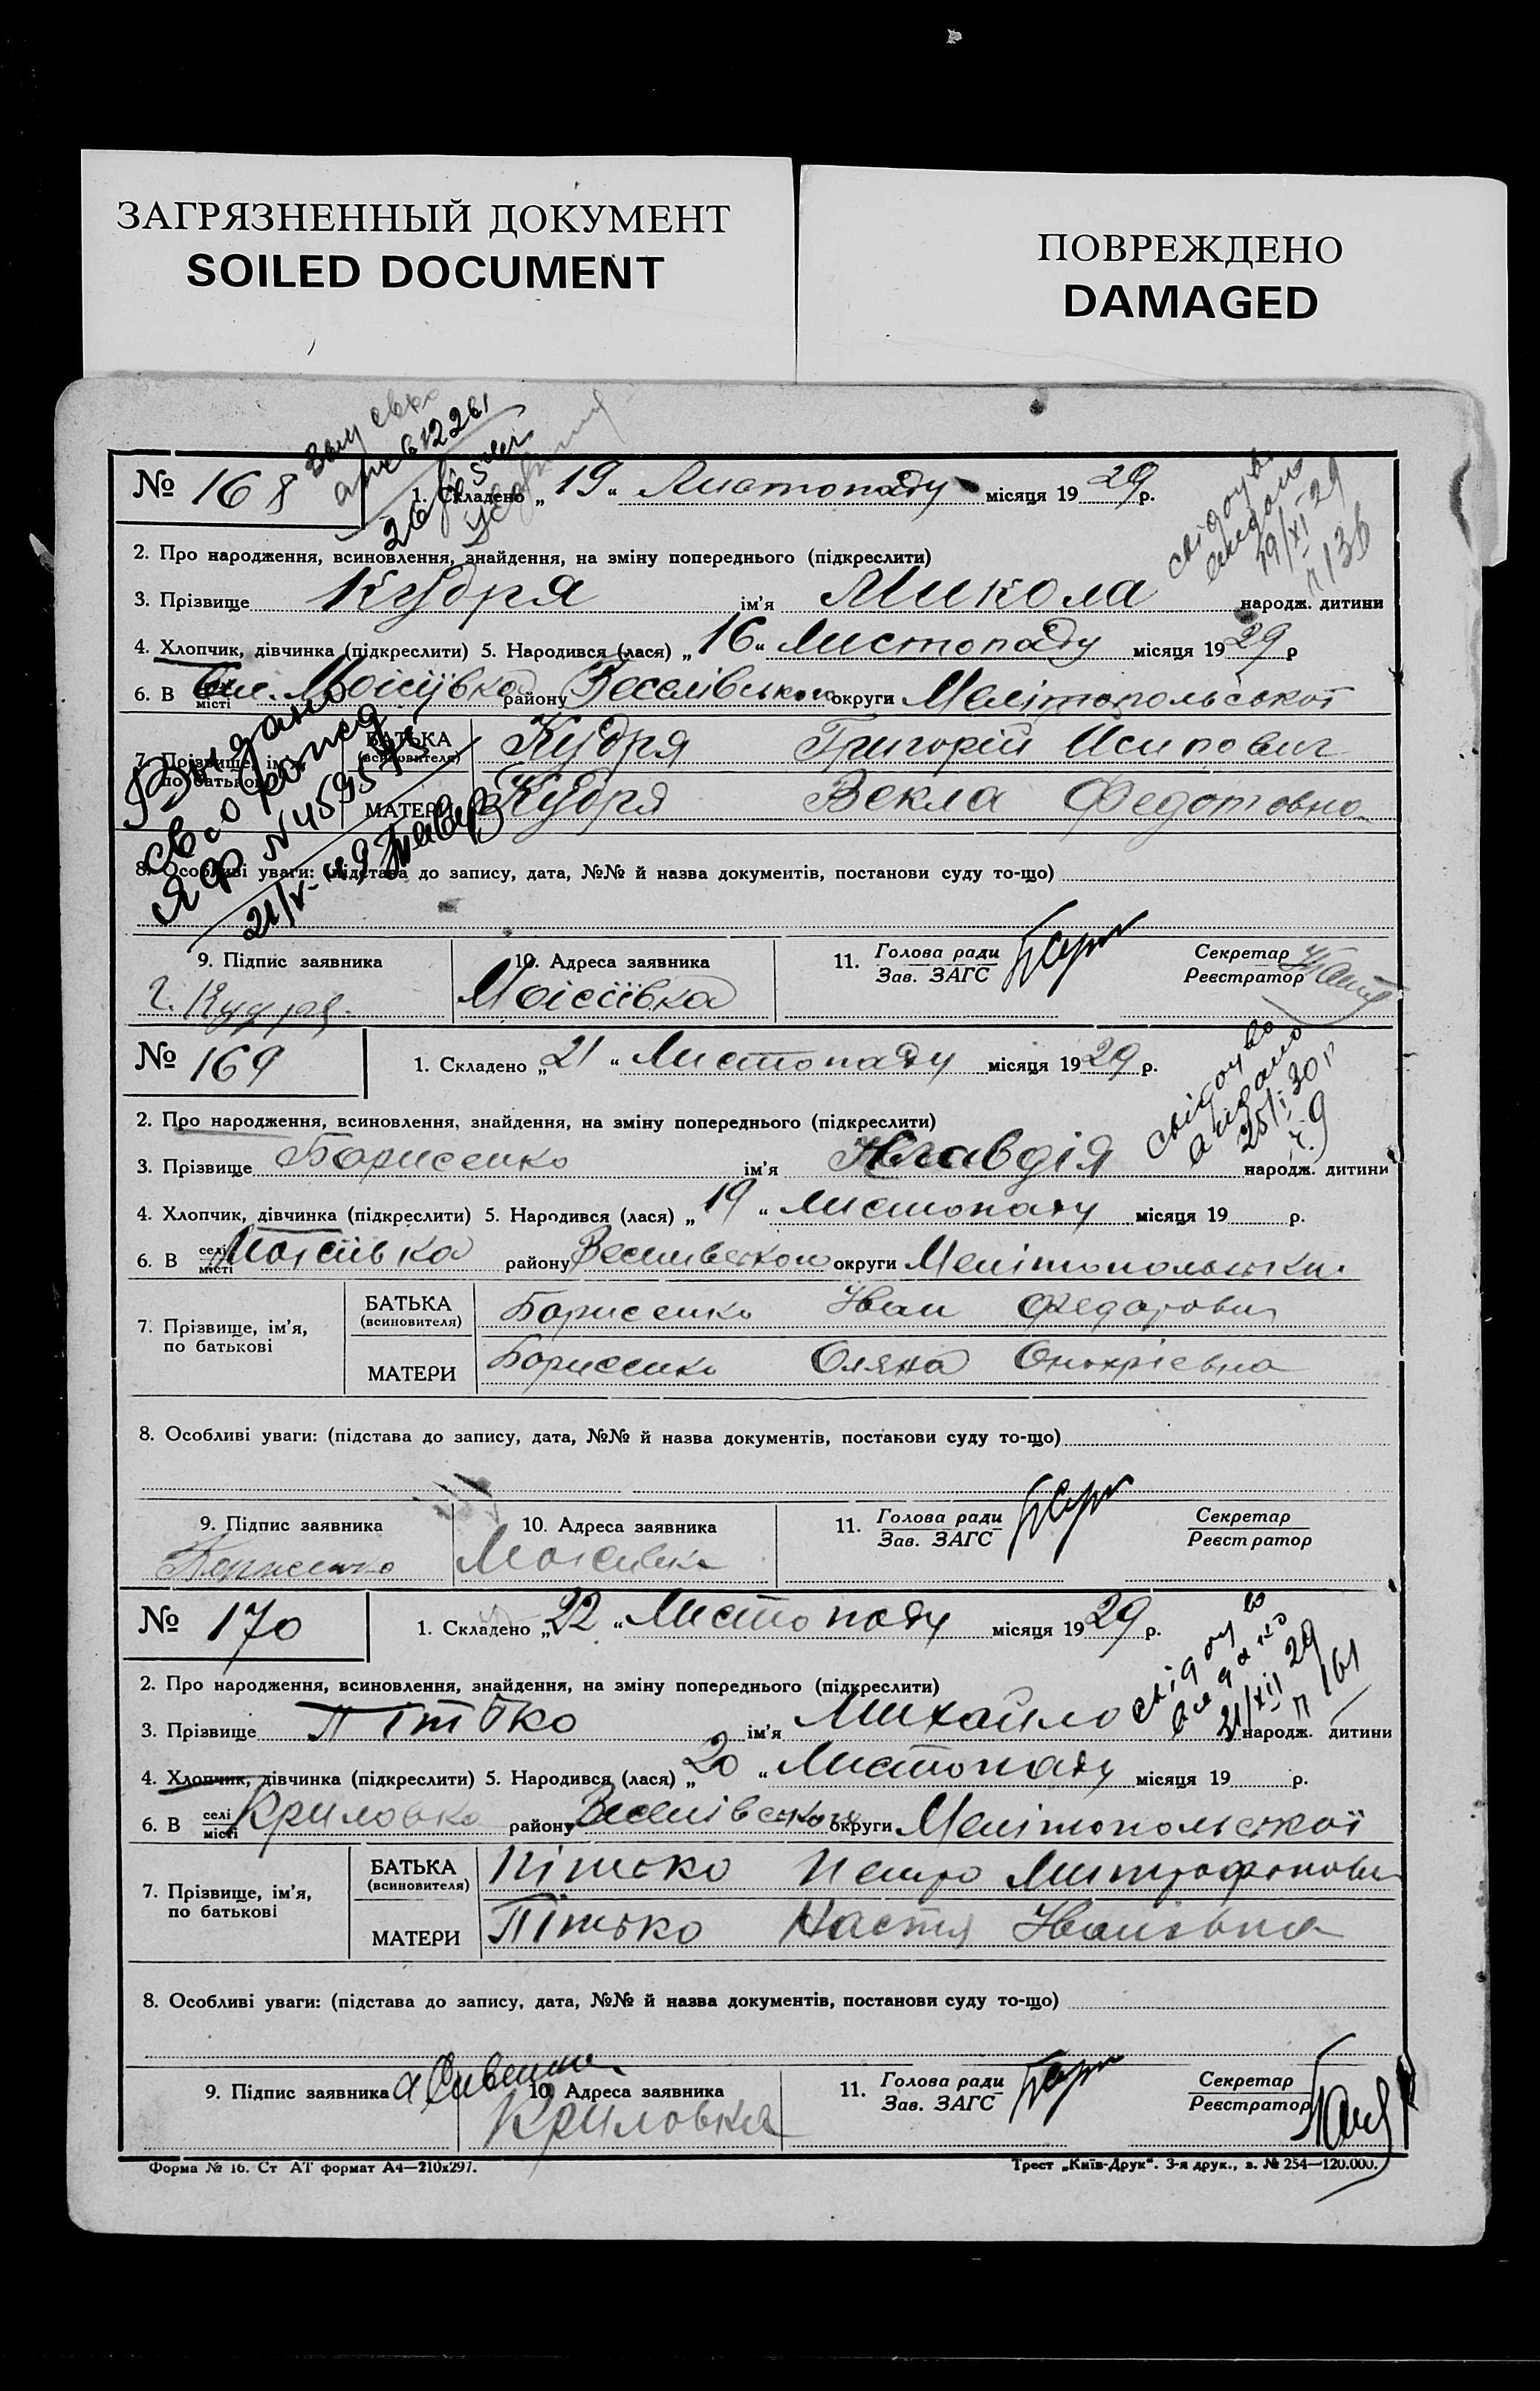 ЗАГРЯЗНЕННЫЙ ДОКУМЕНТ
SOILED DOCUMENT
ПОВРЕЖДЕНО
DAMAGED
№ 168 1. Складено „19“ Листопаду місяця 1929 р.
2. Про народження, всиновлення, знайдення, на зміну попереднього (підкреслити)
3. Прізвище Кудря ім'я Микола народж. дитини
4. Хлопчик, дівчинка (підкреслити) 5. Народився (лася) „16“ Листопаду місяця 1929 р
6. В місті Моісіївка району Веселівського округи Мелітопольської
7. Прізвище, ім'я, по батькові
БАТЬКА (всиновителя) Кудря Григорій Исипович
МАТЕРИ Кудря Векла Федотовна
8. Особливі уваги: (підстава до запису, дата, №№ й назва документів, постанови суду то-що)
Видано
21/V-49
свідоцтво
19/XI-29
9. Підпис заявника 10. Адреса заявника 11. Голова ради Зав. ЗАГС Секретар Реєстратор
Г. Кудря. Моісеївка
№ 169 1. Складено „21“ Листопаду місяця 1929 р.
2. Про народження, всиновлення, знайдення, на зміну попереднього (підкреслити)
3. Прізвище Борисенко ім'я Клавдія народж. дитини
свідоцтво
25/I 30 р
ч. 9
4. Хлопчик, дівчинка (підкреслити) 5. Народився (лася) „19“ листопаду місяця 19 р.
6. В селі місті Моісіівка району Веселівського округи Мелітопольськи
7. Прізвище, ім'я, по батькові
БАТЬКА (всиновителя) Борисенко Иван Федорович
МАТЕРИ Борисенко Оляна Онохріевна
8. Особливі уваги: (підстава до запису, дата, №№ й назва документів, постанови суду то-що)
9. Підпис заявника 10. Адреса заявника 11. Голова ради Зав. ЗАГС Секретар Реєстратор
Борисенко Моісеівка
№ 170 1. Складено „22“ Листопаду місяця 1929 р.
2. Про народження, всиновлення, знайдення, на зміну попереднього (підкреслити)
3. Прізвище Пітько ім'я Михайло народж. дитини
свідоцтво
видано
21/XII 29
п 161
4. Хлопчик, дівчинка (підкреслити) 5. Народився (лася) „20“ Листопаду місяця 19 р.
6. В селі місті Криловка району Веселівського округи Мелітопольської
7. Прізвище, ім'я, по батькові
БАТЬКА (всиновителя) Пітько Петро Митрофанович
МАТЕРИ Пітько Настя Иванівна
8. Особливі уваги: (підстава до запису, дата, №№ й назва документів, постанови суду то-що)
9. Підпис заявника 10. Адреса заявника 11. Голова ради Зав. ЗАГС Секретар Реєстратор
Криловка
Форма № 16. Ст АТ формат А4—210x297. Трест „Київ-Друк“. 3-я друк., з. № 254—120.000.